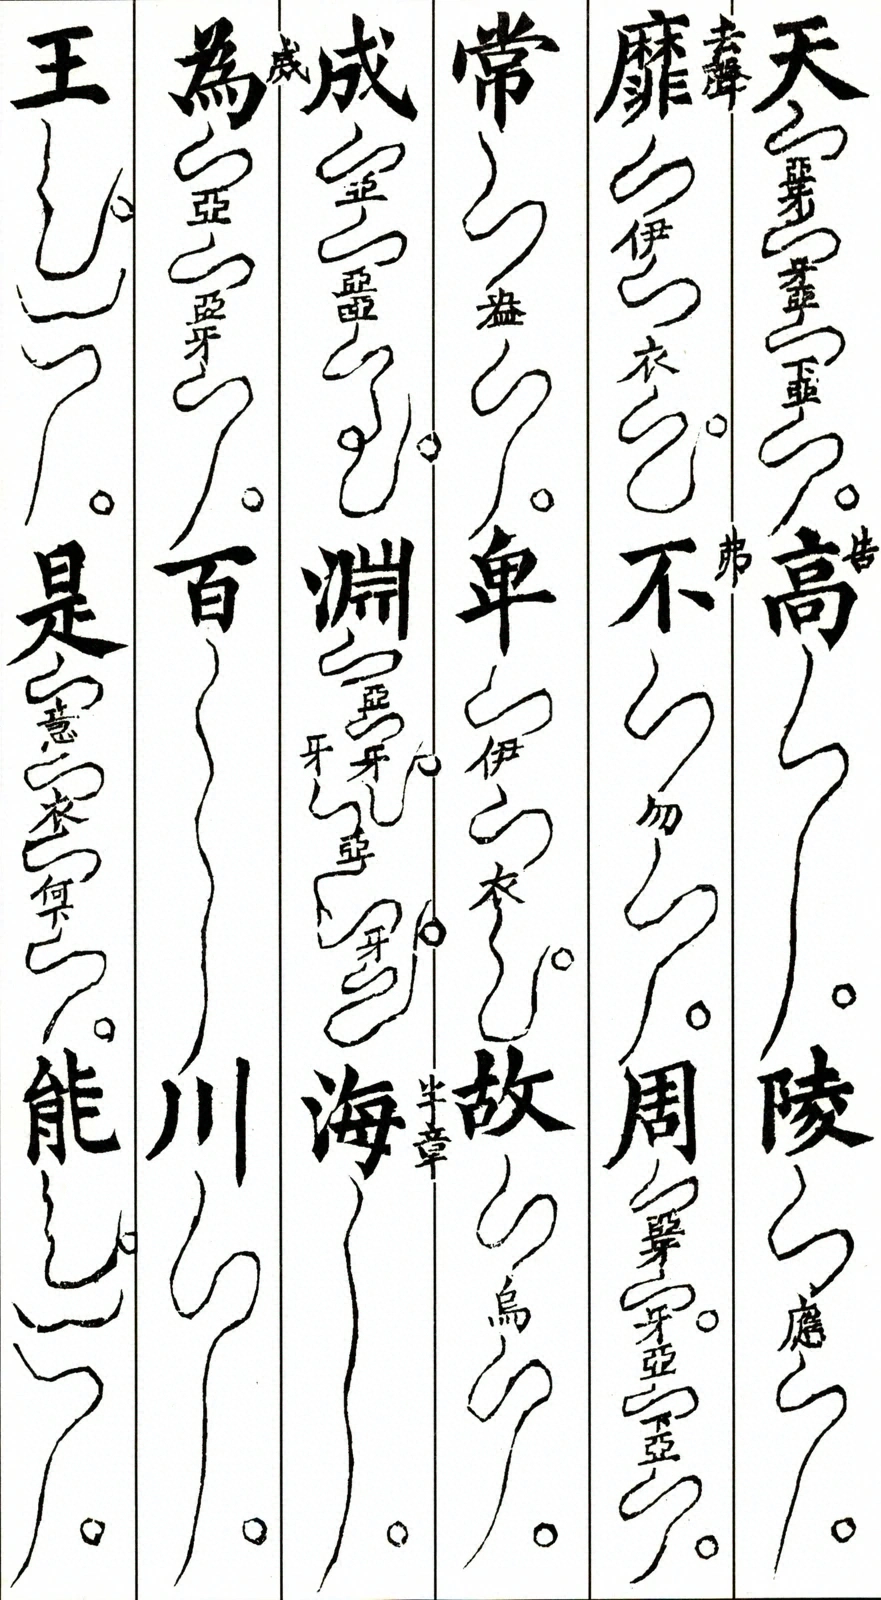 天 亞牙 牙亞 下亞 高 告 陵 應
靡 去聲 伊 衣 不 弗 勿 周 亞牙 牙亞 下亞
常 盎 卑 伊 衣 故 烏
成 亞 亞亞 淵 亞 牙 牙 亞 牙 海 半章
為 亞 亞牙 百 川
王 是 意 衣 何下 能